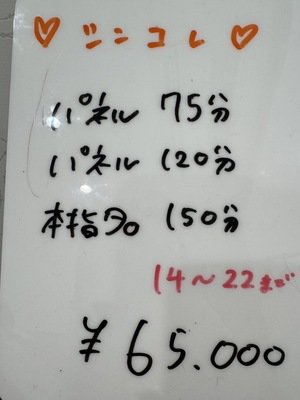 ♡ シンコレ ♡
パネル 75分
パネル 120分
本指名 150分
14〜22まで
¥65.000